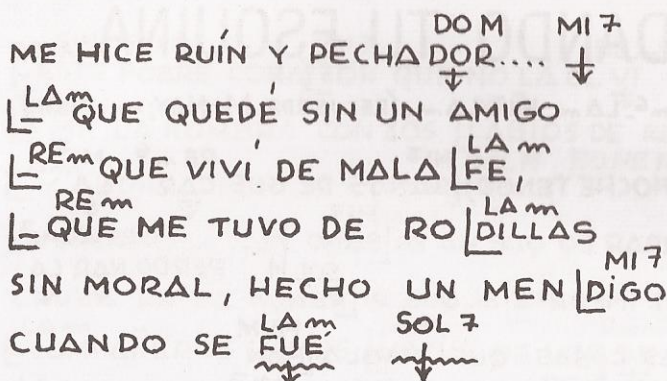 DO M MI 7
ME HICE RUÍN Y PECHADOR....
LAm
QUE QUEDÉ SIN UN AMIGO
REm LAm
QUE VIVÍ DE MALA FE,
REm LAm
QUE ME TUVO DE RODILLAS
MI 7
SIN MORAL, HECHO UN MENDIGO
LAm SOL 7
CUANDO SE FUÉ